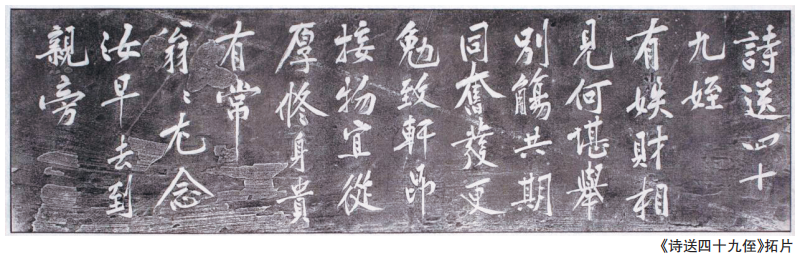 詩送四十
九姪
有娭財相
見何堪舉
別觴共期
同奮發更
勉致軒昂
接物宜從
厚修身貴
有常
翁〻尤念
汝早去到
親旁
《诗送四十九侄》拓片